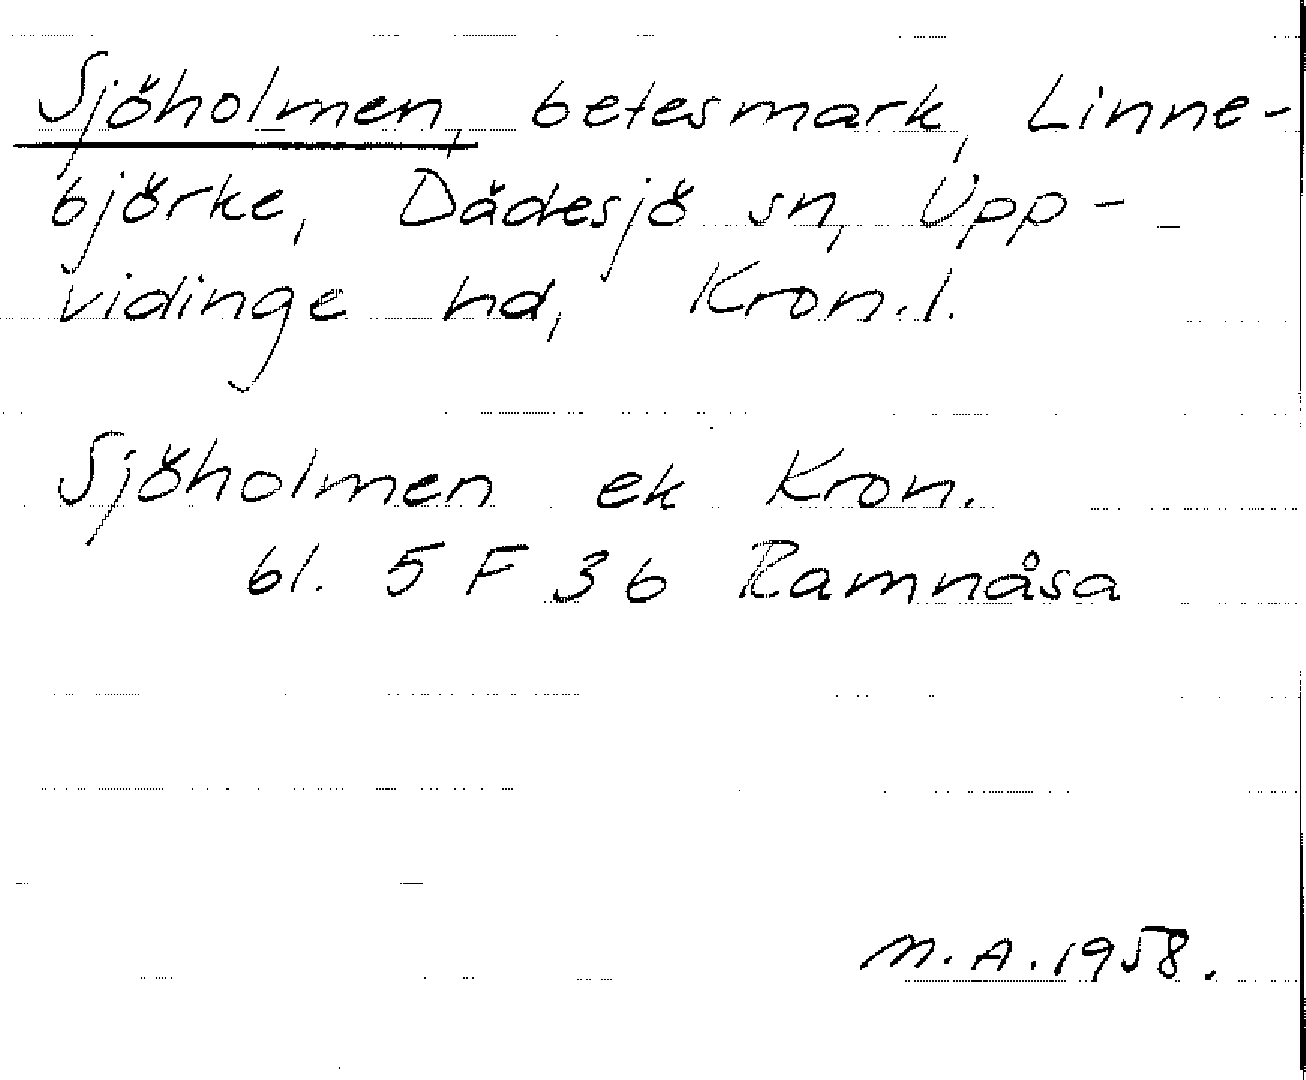 Sjöholmen, betesmark, Linne-
björke, Dädesjö sn, Upp-
vidinge hd, Kron.l.
Sjöholmen ek Kron.
bl. 5 F 3b Ramnåsa
M.A. 1958.